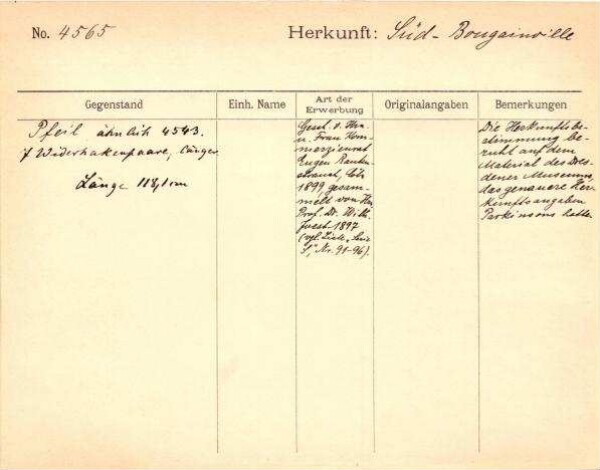 No. 4565
Herkunft: Süd-Bougainville
Gegenstand
Einh. Name
Art der Erwerbung
Originalangaben
Bemerkungen
Pfeil ähnlich 4543.
7 Widerhakenpaare, länger
Länge 118,1 cm
Gesch. v. Hrn.
u. Frau Kom-
merzienrat
Eugen Rauten-
strauch, Cöln
1899 gesam-
melt von Hrn.
Prof. Dr. Wilh.
Joest 1897
Nr. 91-96).
Die Herkunftsbe-
stimmung be-
ruht auf dem
Material des Dres-
dener Museums,
das genauere Her-
kunftsangaben
Parkinsons hatte.